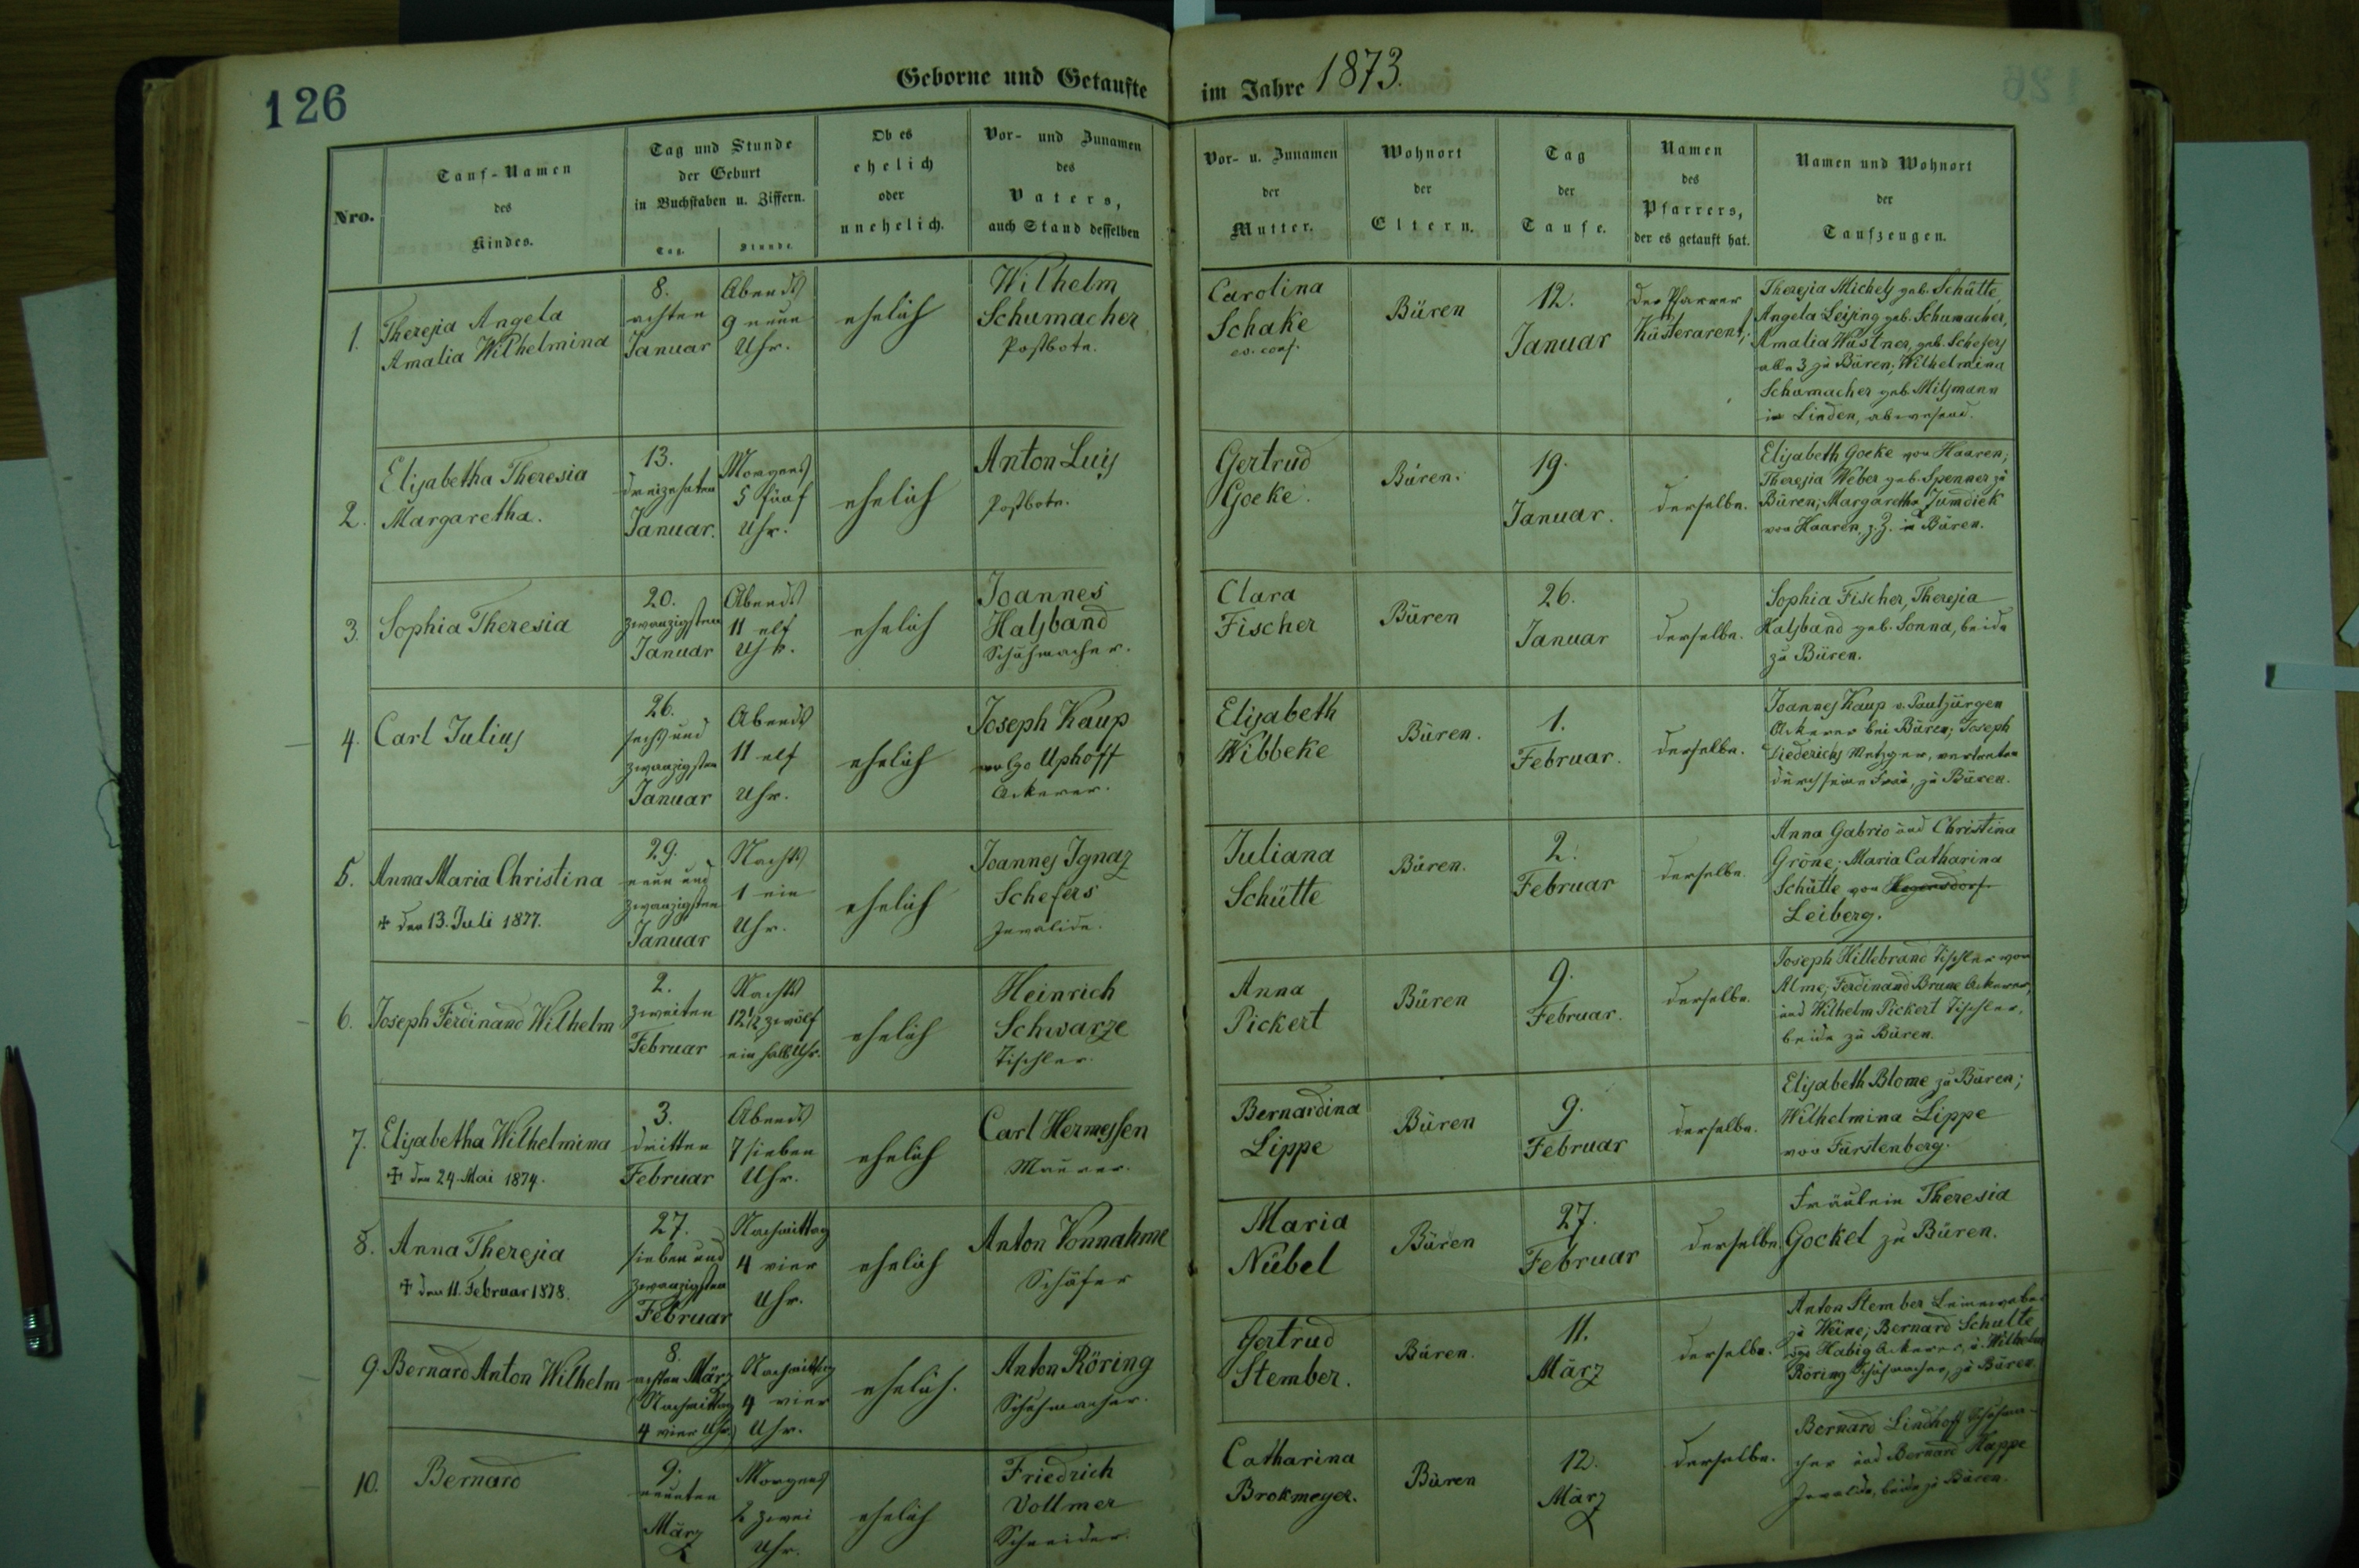 126
Geborne und Getaufte
im Jahre 1873.
Nro.
Tauf-Namen
des
Kindes.
Tag und Stunde
der Geburt
in Buchstaben u. Ziffern.
Tag.
Stunde.
Ob es
ehelich
oder
unehelich.
Vor- und Zunamen
des
Vaters,
auch Stand desselben
Vor- u. Zunamen
der
Mutter.
Wohnort
der
Eltern.
Tag
der
Taufe.
Namen
des
Pfarrers,
der es getauft hat.
Namen und Wohnort
der
Taufzeugen.
1.
Theresia Angela
Amalia Wilhelmina
8.
achten
Januar
Abends
9 neun
Uhr.
ehelich
Wilhelm
Schumacher
Postbote.
Carolina
Schake
ev. conf.
Büren
12.
Januar
der Pfarrer
Küsterarent,
Theresia Michels geb. Schütte,
Angela Leising geb. Schumacher,
Amalia Wüstner, geb. Schefers
alle 3 zu Büren; Wilhelmina
Schumacher geb. Milsmann
in Linden, abwesend.
2.
Elisabetha Theresia
Margaretha.
13.
dreizehnten
Januar.
Morgens
5 fünf
Uhr.
ehelich
Anton Luis
Postbote.
Gertrud
Goeke.
Büren.
19.
Januar.
derselbe.
Elisabeth Goeke von Haaren;
Theresia Weber geb. Spenner zu
Büren; Margaretha Jumdiek
von Haaren, z. Z. in Büren.
3.
Sophia Theresia
20.
zwanzigsten
Januar
Abends
11 elf
Uhr.
ehelich
Joannes
Halsband
Schuhmacher.
Clara
Fischer
Büren
26.
Januar
derselbe.
Sophia Fischer, Theresia
Halsband geb. Sonna, beide
zu Büren.
4.
Carl Julius
26.
sechs und
zwanzigsten
Januar
Abends
11 elf
Uhr.
ehelich
Joseph Kaup
vulgo Uphoff
Ackerer.
Elisabeth
Wibbeke
Büren.
1.
Februar.
derselbe.
Joannes Kaup v. Pautjürgen
Ackerer bei Büren; Joseph
Liederichs Metzger, vertreten
durch seine Frau, zu Büren.
5.
Anna Maria Christina
+ den 13. Juli 1877.
29.
neun und
zwanzigsten
Januar
Nachts
1 ein
Uhr.
ehelich
Joannes Ignaz
Schefers
Invalide.
Juliana
Schütte
Büren.
2.
Februar
derselbe.
Anna Gabrio und Christina
Gröne; Maria Catharina
Schütte von Hegensdorf
Leiberg.
6.
Joseph Ferdinand Wilhelm
2.
zweiten
Februar
Nachts
12½ zwölf
ein halb Uhr.
ehelich
Heinrich
Schwarze
Tischler.
Anna
Pickert
Büren
9.
Februar.
derselbe.
Joseph Hillebrand Tischler von
Alme; Ferdinand Brune Ackerer,
und Wilhelm Pickert Tischler,
beide zu Büren.
7.
Elisabetha Wilhelmina
+ den 24. Mai 1874.
3.
dritten
Februar
Abends
7 sieben
Uhr.
ehelich
Carl Hermessen
Maurer.
Bernardina
Lippe
Büren
9.
Februar
derselbe.
Elisabeth Blome zu Büren;
Wilhelmina Lippe
von Fürstenberg.
8.
Anna Theresia
+ den 11. Februar 1878.
27.
sieben und
zwanzigsten
Februar
Nachmittag
4 vier
Uhr.
ehelich
Anton Vonnahme
Schäfer
Maria
Nübel
Büren
27.
Februar
derselbe.
Fräulein Theresia
Gockel zu Büren.
9
Bernard Anton Wilhelm
8.
achten März
(Nachmittag
4 vier Uhr.)
Nachmittag
4 vier
Uhr.
ehelich.
Anton Röring
Schuhmacher.
Gertrud
Stember.
Büren.
11.
März
derselbe.
Anton Stember Leineweber
zu Weine; Bernard Schulte
vlgo Habig Ackerer, u. Wilhelm
Röring Schuhmacher, zu Büren.
10.
Bernard
9.
neunten
März
Morgens
2 zwei
Uhr.
ehelich
Friedrich
Vollmer
Schneider.
Catharina
Brokmeyer.
Büren
12.
März
derselbe.
Bernard Lindhoff Schuhma-
cher und Bernard Kappe
Invalide, beide zu Büren.